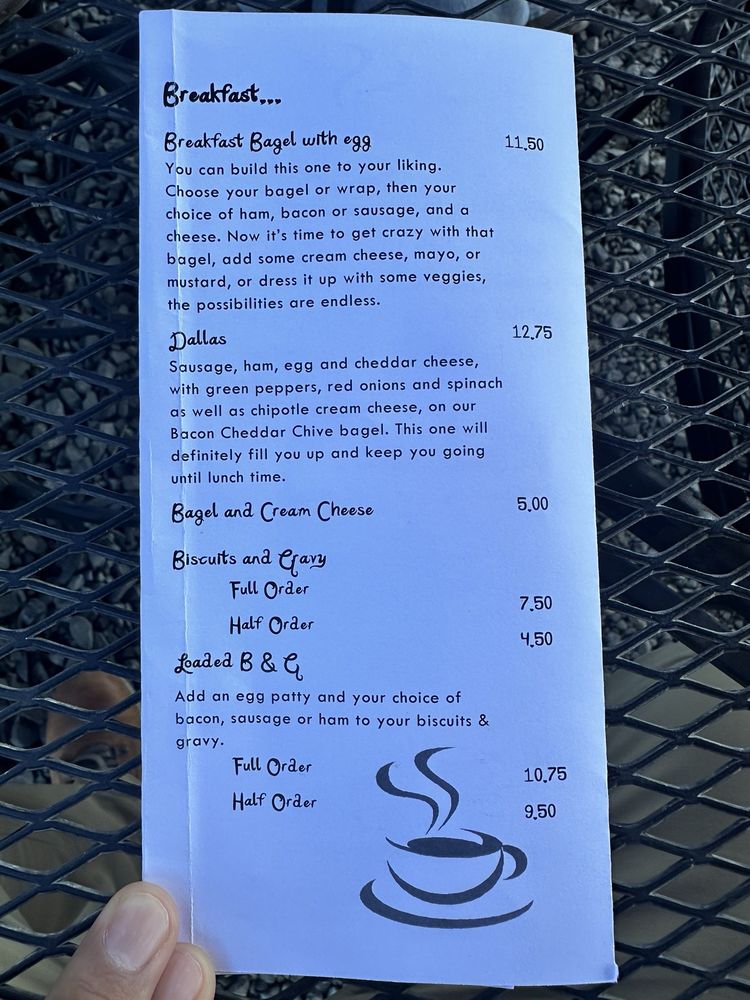 Breakfast...
Breakfast Bagel with egg 11.50
You can build this one to your liking.
Choose your bagel or wrap, then your
choice of ham, bacon or sausage, and a
cheese. Now it's time to get crazy with that
bagel, add some cream cheese, mayo, or
mustard, or dress it up with some veggies,
the possibilities are endless.
Dallas 12.75
Sausage, ham, egg and cheddar cheese,
with green peppers, red onions and spinach
as well as chipotle cream cheese, on our
Bacon Cheddar Chive bagel. This one will
definitely fill you up and keep you going
until lunch time.
Bagel and Cream Cheese 5.00
Biscuits and Gravy
Full Order 7.50
Half Order 4.50
Loaded B & G
Add an egg patty and your choice of
bacon, sausage or ham to your biscuits &
gravy.
Full Order 10.75
Half Order 9.50